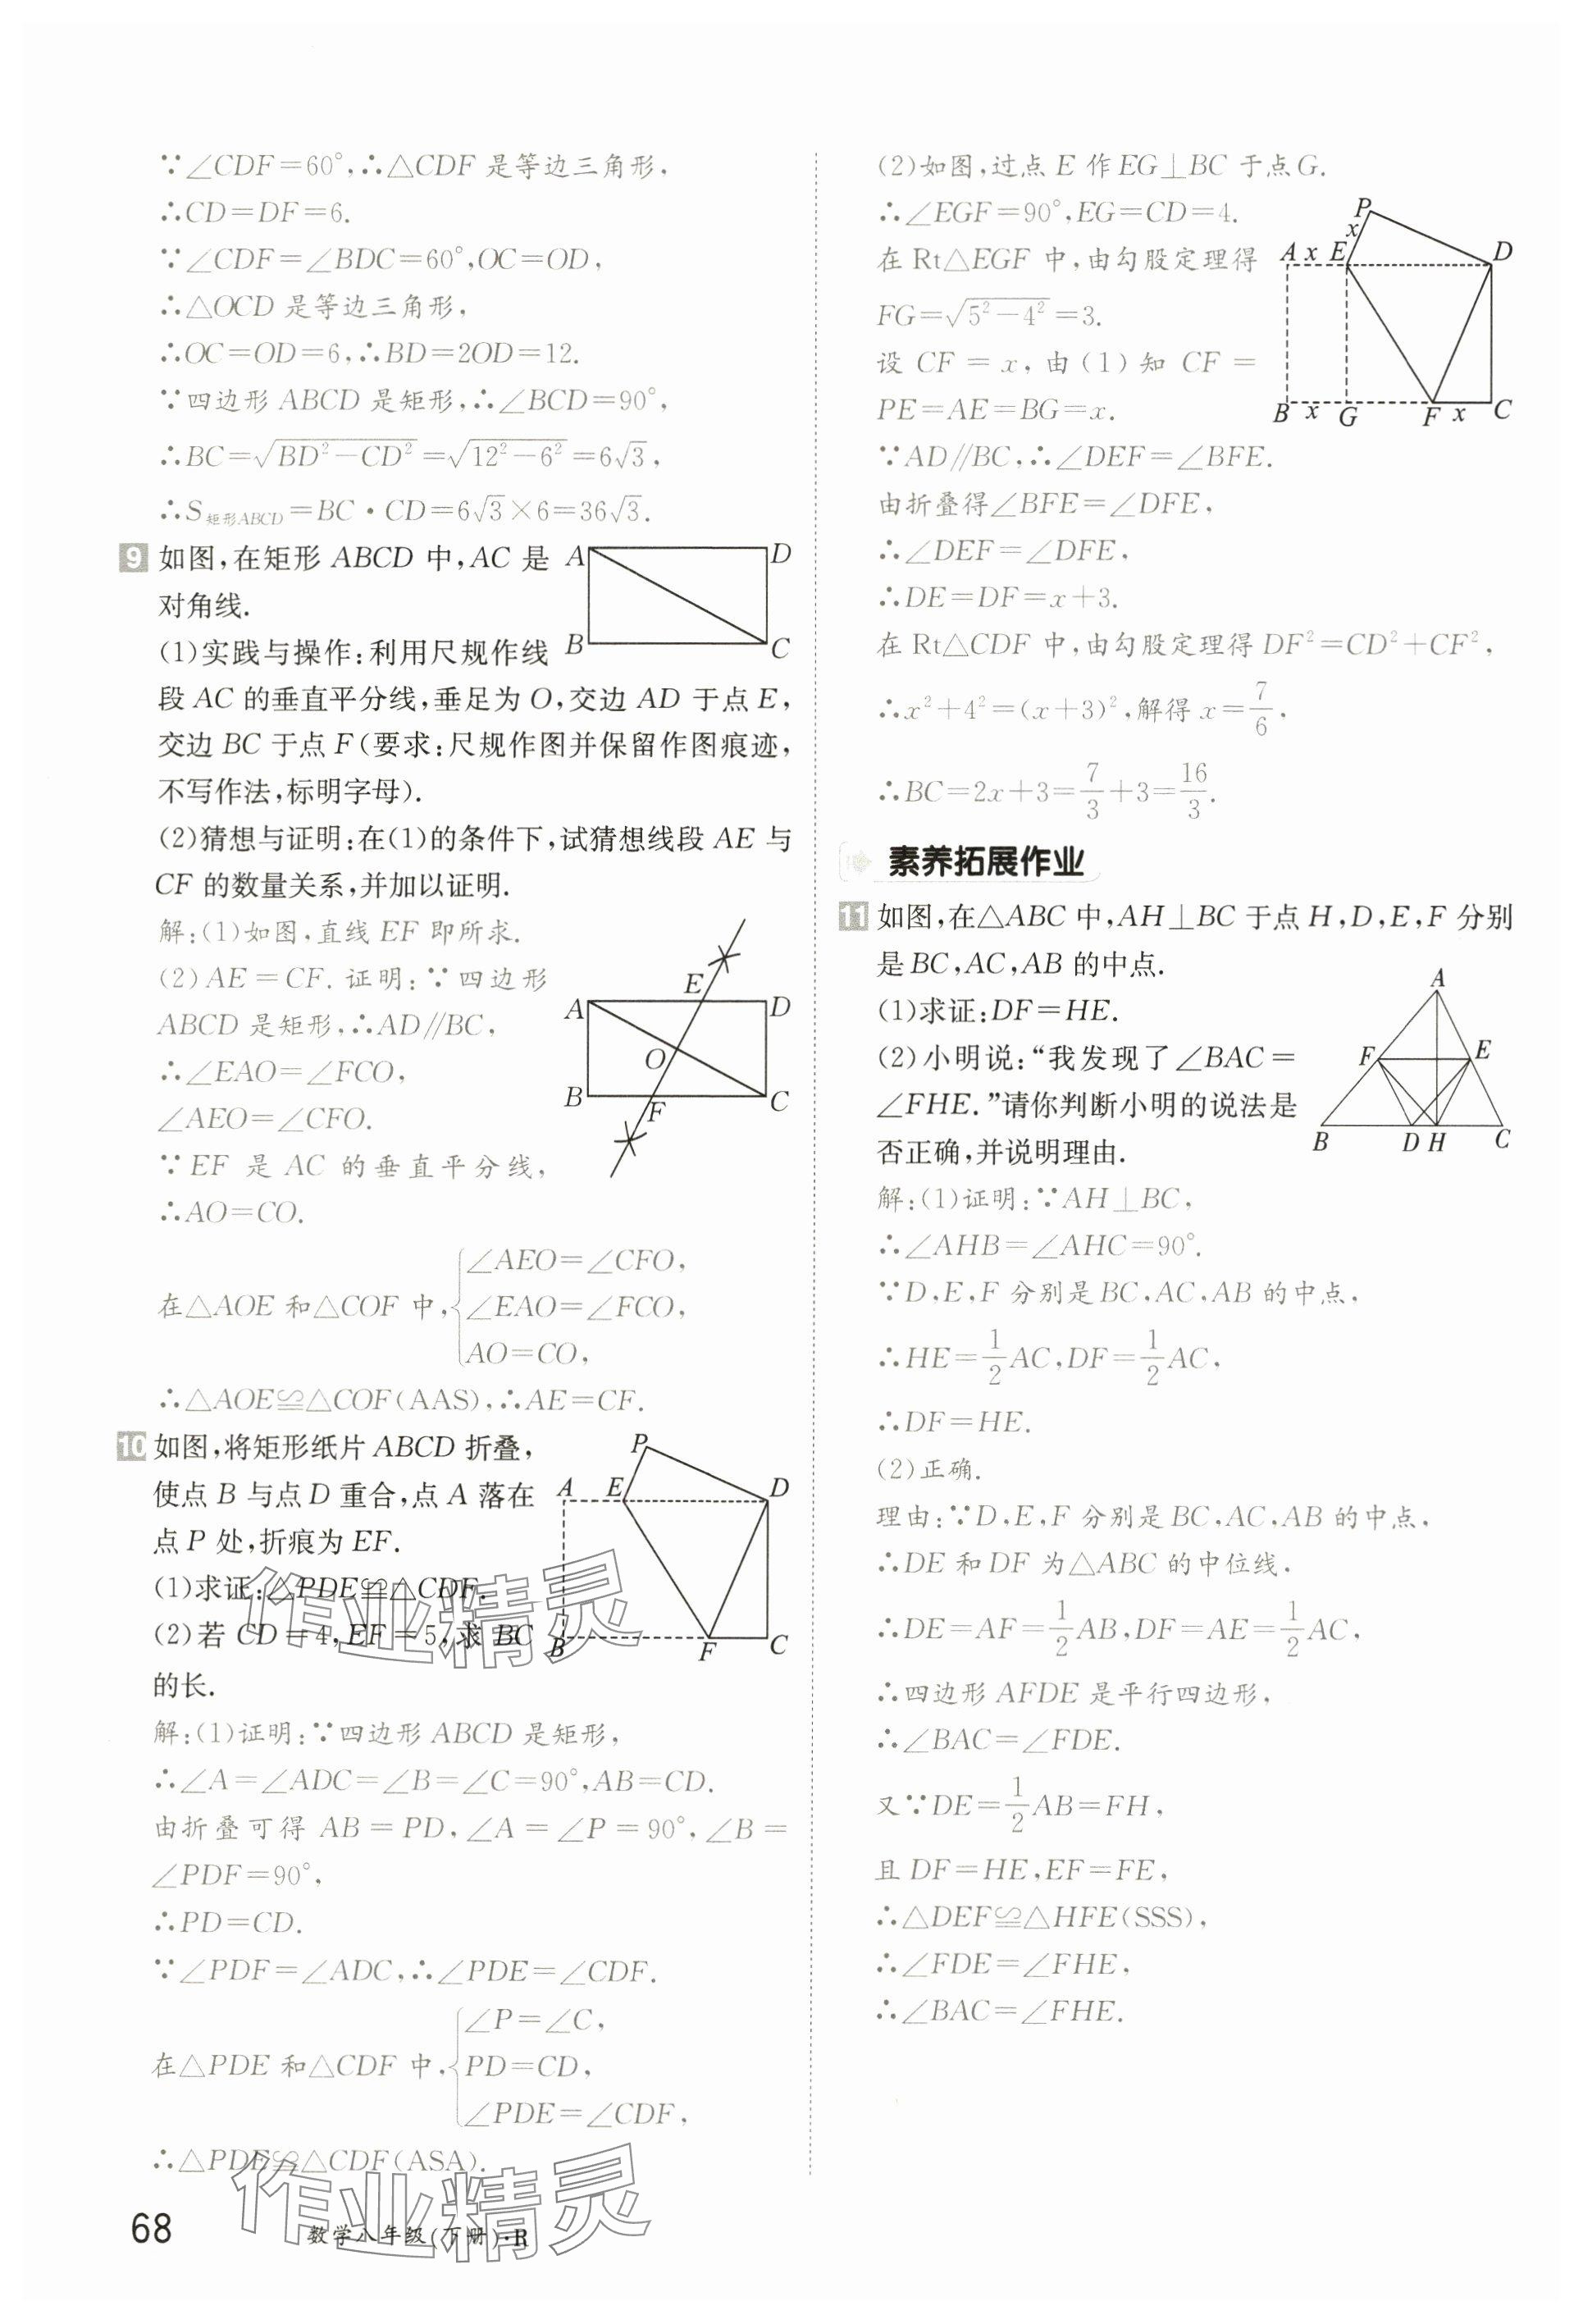 ∵∠CDF=60°,∴△CDF 是等边三角形,
∴CD=DF=6.
∵∠CDF=∠BDC=60°,OC=OD,
∴△OCD 是等边三角形,
∴OC=OD=6,∴BD=2OD=12.
∵四边形 ABCD 是矩形,∴∠BCD=90°,
∴BC=√(BD²-CD²)=√(12²-6²)=6√3,
∴S矩形ABCD=BC·CD=6√3×6=36√3.
9 如图,在矩形 ABCD 中,AC 是
对角线.
A D
B C
(1)实践与操作:利用尺规作线
段 AC 的垂直平分线,垂足为 O,交边 AD 于点 E,
交边 BC 于点 F(要求:尺规作图并保留作图痕迹,
不写作法,标明字母).
(2)猜想与证明:在(1)的条件下,试猜想线段 AE 与
CF 的数量关系,并加以证明.
解:(1)如图,直线 EF 即所求.
(2)AE=CF. 证明:∵四边形
ABCD 是矩形,∴AD∥BC,
∴∠EAO=∠FCO,
∠AEO=∠CFO.
∵EF 是 AC 的垂直平分线,
∴AO=CO.
E
A D
O
B F C
∠AEO=∠CFO,
在△AOE 和△COF 中,∠EAO=∠FCO,
AO=CO,
∴△AOE≌△COF(AAS),∴AE=CF.
10 如图,将矩形纸片 ABCD 折叠,
使点 B 与点 D 重合,点 A 落在
点 P 处,折痕为 EF.
(1)求证:△PDE≌△CDF.
(2)若 CD=4,EF=5,求 BC
的长.
P
A E D
B F C
解:(1)证明:∵四边形 ABCD 是矩形,
∴∠A=∠ADC=∠B=∠C=90°,AB=CD.
由折叠可得 AB=PD,∠A=∠P=90°,∠B=
∠PDF=90°,
∴PD=CD.
∵∠PDF=∠ADC,∴∠PDE=∠CDF.
∠P=∠C,
在△PDE 和△CDF 中,PD=CD,
∠PDE=∠CDF,
∴△PDE≌△CDF(ASA).
作业精灵
作业精灵
68
数学八年级(下册)·R
(2)如图,过点 E 作 EG⊥BC 于点 G.
∴∠EGF=90°,EG=CD=4.
在 Rt△EGF 中,由勾股定理得
FG=√(5²-4²)=3.
设 CF=x,由(1)知 CF=
PE=AE=BG=x.
P
x
A x E D
B x G F x C
∵AD∥BC,∴∠DEF=∠BFE.
由折叠得∠BFE=∠DFE,
∴∠DEF=∠DFE,
∴DE=DF=x+3.
在 Rt△CDF 中,由勾股定理得 DF²=CD²+CF²,
∴x²+4²=(x+3)²,解得 x=7/6,
∴BC=2x+3=7/3+3=16/3.
素养拓展作业
11 如图,在△ABC 中,AH⊥BC 于点 H,D,E,F 分别
是 BC,AC,AB 的中点.
(1)求证:DF=HE.
(2)小明说:“我发现了∠BAC=
∠FHE.”请你判断小明的说法是
否正确,并说明理由.
A
F E
B D H C
解:(1)证明:∵AH⊥BC,
∴∠AHB=∠AHC=90°.
∵D,E,F 分别是 BC,AC,AB 的中点,
∴HE=1/2AC,DF=1/2AC,
∴DF=HE.
(2)正确.
理由:∵D,E,F 分别是 BC,AC,AB 的中点,
∴DE 和 DF 为△ABC 的中位线.
∴DE=AF=1/2AB,DF=AE=1/2AC,
∴四边形 AFDE 是平行四边形,
∴∠BAC=∠FDE.
又∵DE=1/2AB=FH,
且 DF=HE,EF=FE,
∴△DEF≌△HFE(SSS),
∴∠FDE=∠FHE,
∴∠BAC=∠FHE.